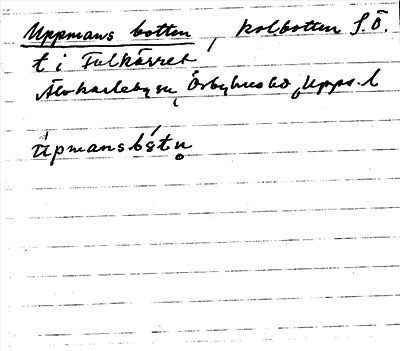 Uppmans botten, kolbotten S.Ö.
t i Fulkärret
Älvkarleby sn, Örbyhus hd, Upps. l
úpmansbòtn̥